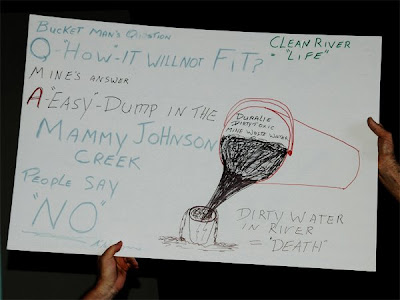 BUCKET MAN'S QUESTION
Q-"HOW"-IT WILL NOT FIT?
MINE'S ANSWER
A-"EASY"-DUMP IN THE
MAMMY JOHNSON
CREEK
PEOPLE SAY
"NO"
CLEAN RIVER
= "LIFE"
DURALIE
DIRTY TOXIC
MINE WASTE WATER
DIRTY WATER
IN RIVER
= "DEATH"